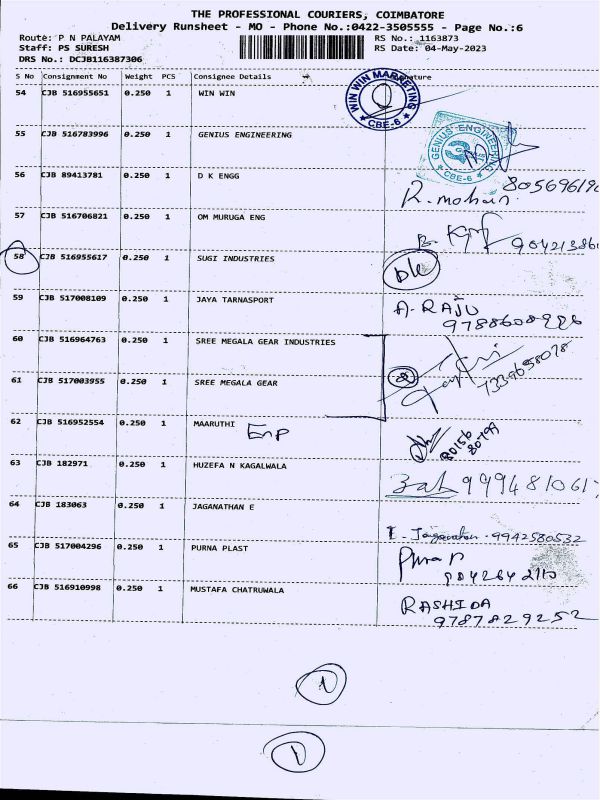 THE PROFESSIONAL COURIERS, COIMBATORE
Delivery Runsheet - MO - Phone No.:0422-3505555 - Page No.:6
Route: P N PALAYAM RS No.: 1163873
Staff: PS SURESH RS Date: 04-May-2023
DRS No.: DCJB116387306
S No Consignment No Weight PCS Consignee Details
54 CJB 516955651 0.250 1 WIN WIN WIN WIN MARKETING * CBE-6 *
55 CJB 516783996 0.250 1 GENIUS ENGINEERING GENIUS ENGINEERING * CBE-6 *
56 CJB 89413781 0.250 1 D K ENGG R. mohan
57 CJB 516706821 0.250 1 OM MURUGA ENG
58 CJB 516955617 0.250 1 SUGI INDUSTRIES
59 CJB 517008109 0.250 1 JAYA TARNASPORT A. RAJU
60 CJB 516964763 0.250 1 SREE MEGALA GEAR INDUSTRIES
61 CJB 517003955 0.250 1 SREE MEGALA GEAR
62 CJB 516952554 0.250 1 MAARUTHI Enp
63 CJB 182971 0.250 1 HUZEFA N KAGALWALA
64 CJB 183063 0.250 1 JAGANATHAN E E. Jaganathan . 9942580532
65 CJB 517004296 0.250 1 PURNA PLAST
66 CJB 516910998 0.250 1 MUSTAFA CHATRUWALA RASHIDA
9787829252
1
1